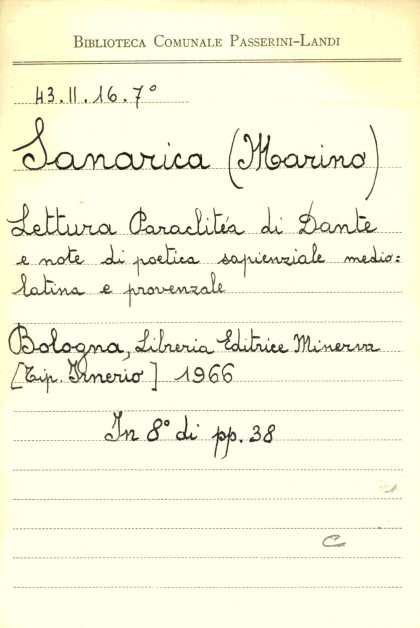 BIBLIOTECA COMUNALE PASSERINI-LANDI
43.II.16.7°
Sanarica (Marino)
Lettura Paraclitéa di Dante
e note di poetica sapienziale medio=
latina e provenzale
Bologna, Libreria Editrice Minerva
[Tip. Irnerio] 1966
In 8° di pp. 38
C